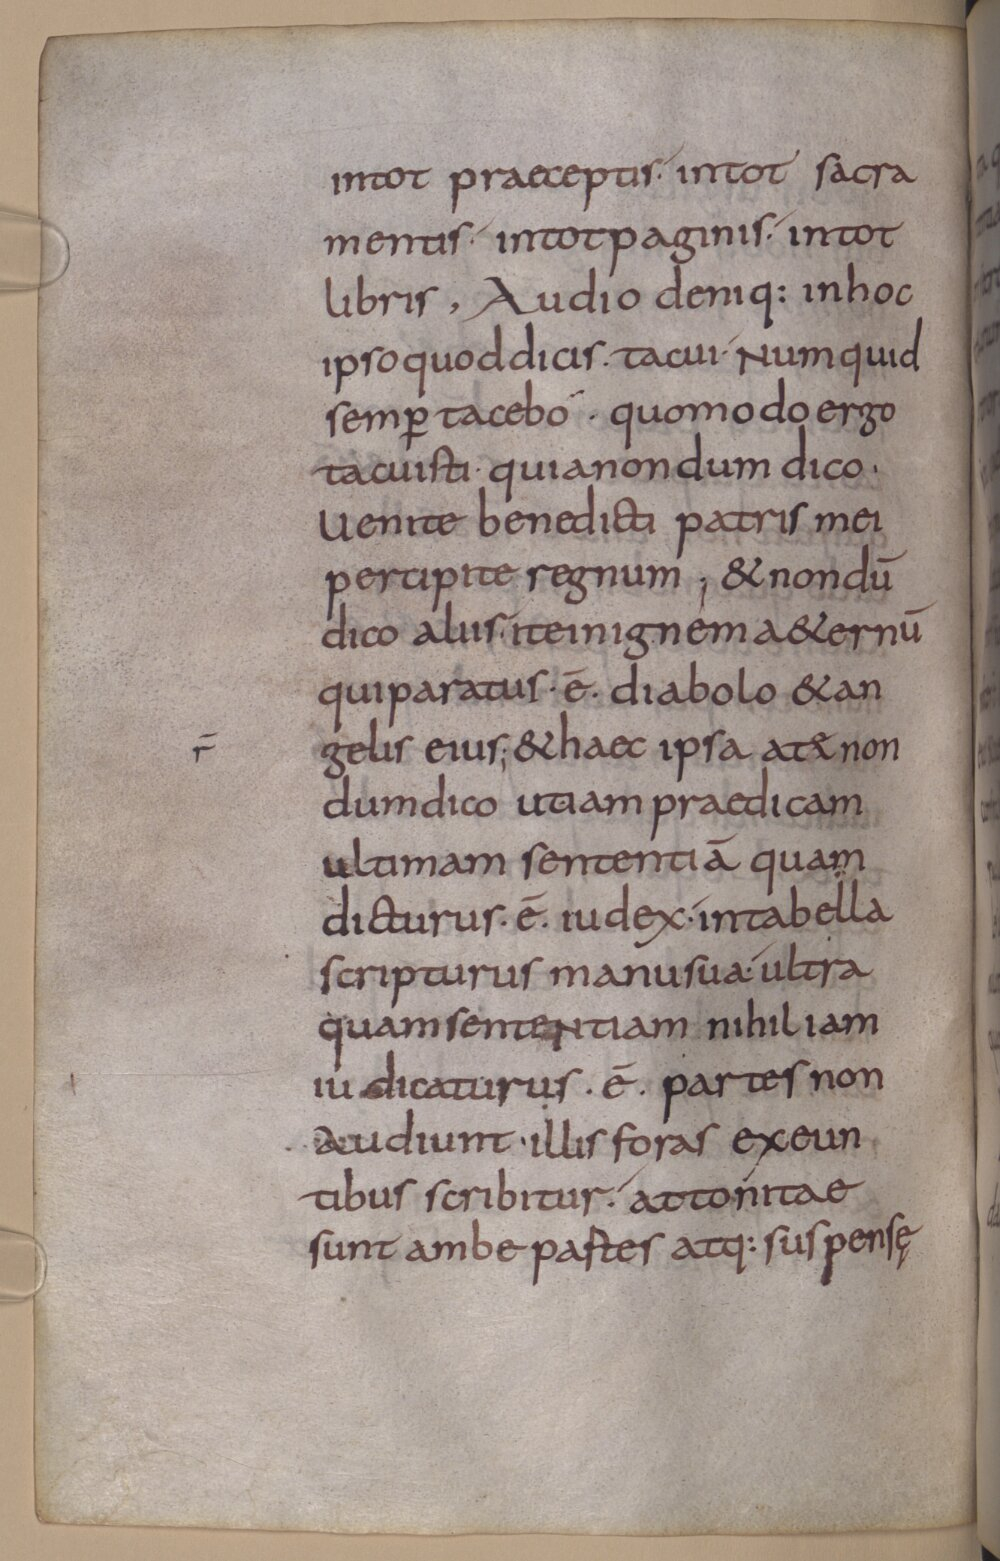 intot praeceptis· intot sacra
mentis· intot paginis· intot
libris, Audio deniq: in hoc
ipso quod dicis· tacui· Numquid
semꝑ tacebo· quomodo ergo
tacuisti· quia nondum dico·
Uenite benedicti patris mei
percipite regnum; & nondū
dico aliis· ite in ignem a&ernū
qui paratus· ē· diabolo & an
r̄
gelis eius; & haec ipsa non
dum dico ut iam praedicam
ultimam sententiā quam
dicturus· ē· iudex· in tabella
scripturus manu sua· ultra
quam sententiam nihil iam
iudicaturus· ē· partes non
audiunt· illis foras exeun
tibus scribitur· attonitae
sunt ambe partes atq: suspensę